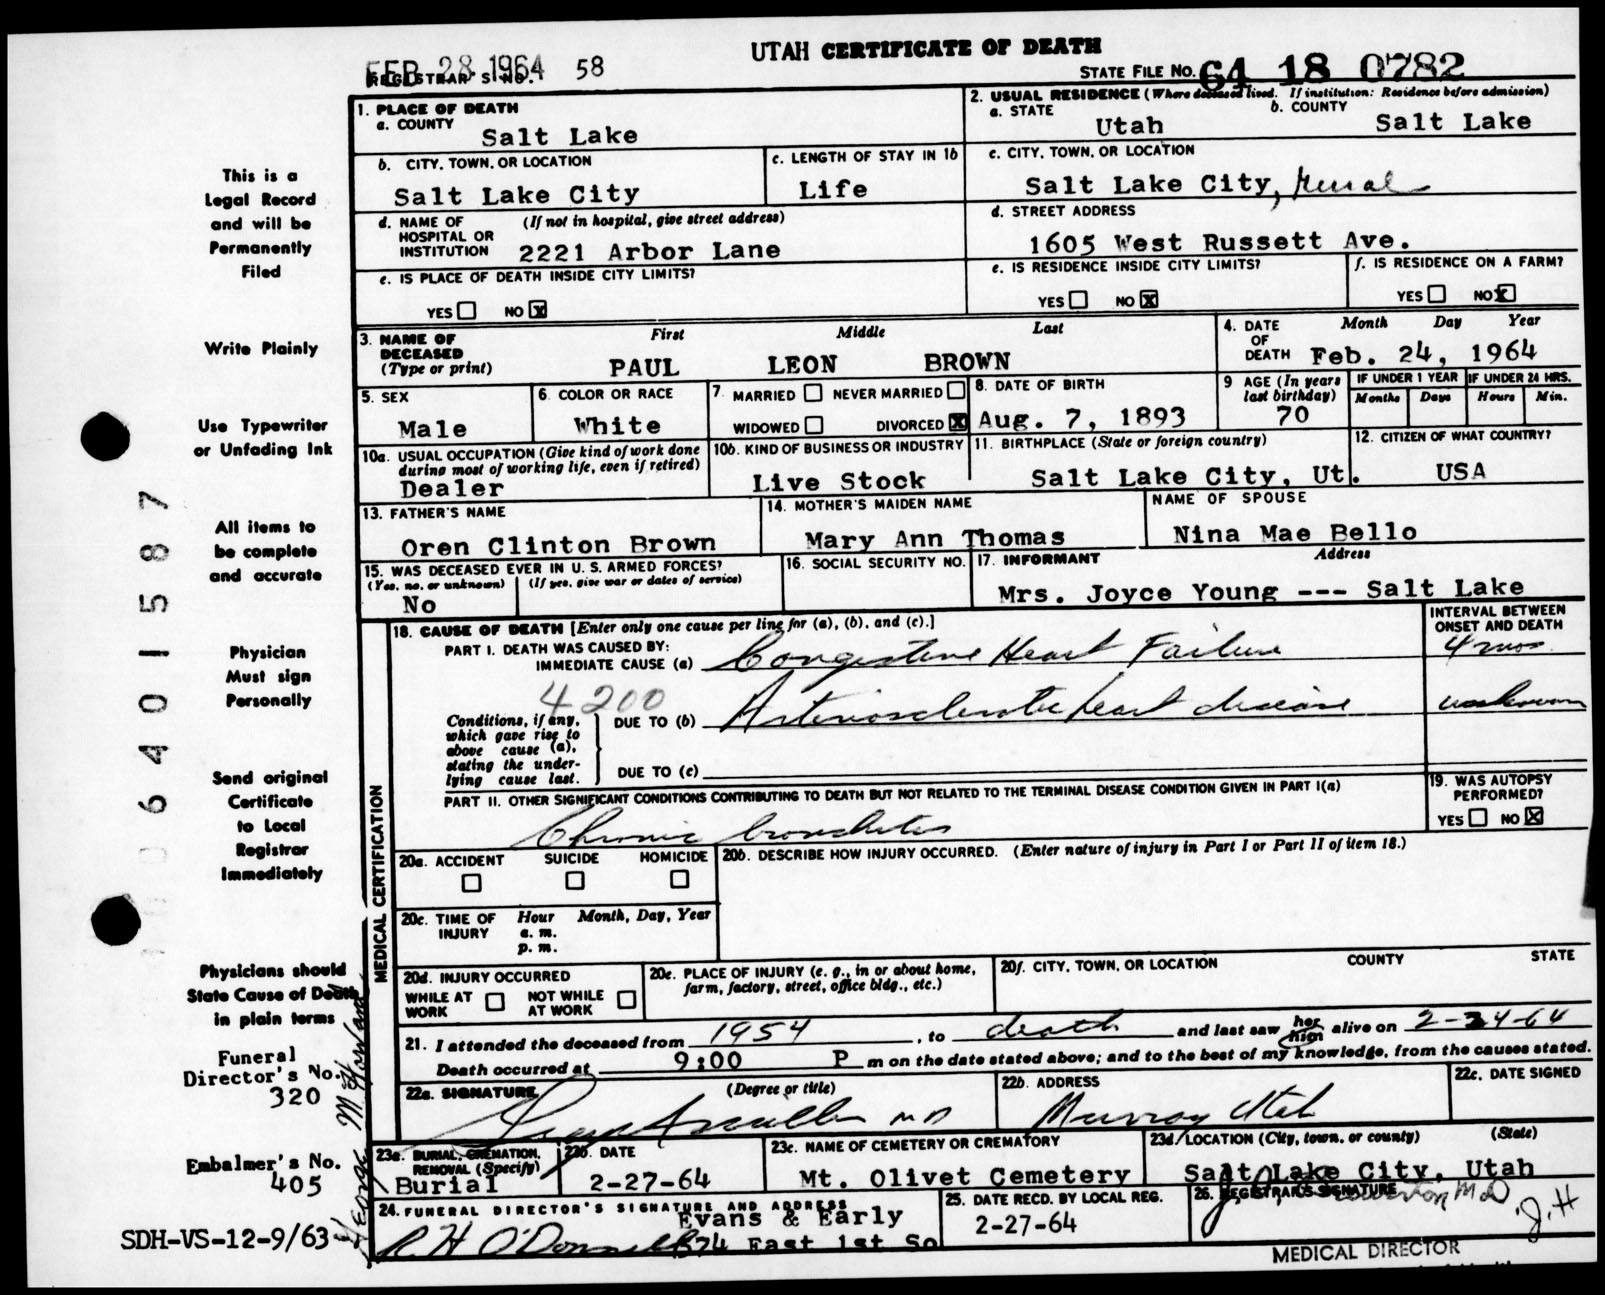 UTAH CERTIFICATE OF DEATH
FEB 28 1964 58
REGISTRAR'S NO.
STATE FILE NO. 64 18 0782
1. PLACE OF DEATH
a. COUNTY
Salt Lake
2. USUAL RESIDENCE (Where deceased lived. If institution: Residence before admission)
a. STATE
Utah
b. COUNTY
Salt Lake
b. CITY, TOWN, OR LOCATION
Salt Lake City
c. LENGTH OF STAY IN 1b
Life
c. CITY, TOWN, OR LOCATION
Salt Lake City, Rural
d. NAME OF HOSPITAL OR INSTITUTION
(If not in hospital, give street address)
2221 Arbor Lane
d. STREET ADDRESS
1605 West Russett Ave.
e. IS PLACE OF DEATH INSIDE CITY LIMITS?
YES NO X
e. IS RESIDENCE INSIDE CITY LIMITS?
YES NO X
f. IS RESIDENCE ON A FARM?
YES NO X
3. NAME OF DECEASED
(Type or print)
First Middle Last
PAUL LEON BROWN
4. DATE OF DEATH
Month Day Year
Feb. 24, 1964
5. SEX
Male
6. COLOR OR RACE
White
7. MARRIED NEVER MARRIED
WIDOWED DIVORCED X
8. DATE OF BIRTH
Aug. 7, 1893
9 AGE (In years last birthday)
70
IF UNDER 1 YEAR
Months Days
IF UNDER 24 HRS.
Hours Min.
10a. USUAL OCCUPATION (Give kind of work done during most of working life, even if retired)
Dealer
10b. KIND OF BUSINESS OR INDUSTRY
Live Stock
11. BIRTHPLACE (State or foreign country)
Salt Lake City, Ut.
12. CITIZEN OF WHAT COUNTRY?
USA
13. FATHER'S NAME
Oren Clinton Brown
14. MOTHER'S MAIDEN NAME
Mary Ann Thomas
NAME OF SPOUSE
Nina Mae Bello
15. WAS DECEASED EVER IN U. S. ARMED FORCES?
(Yes, no, or unknown) (If yes, give war or dates of service)
No
16. SOCIAL SECURITY NO.
17. INFORMANT Address
Mrs. Joyce Young --- Salt Lake
MEDICAL CERTIFICATION
18. CAUSE OF DEATH [Enter only one cause per line for (a), (b), and (c).]
INTERVAL BETWEEN ONSET AND DEATH
PART I. DEATH WAS CAUSED BY:
IMMEDIATE CAUSE (a) Congestive Heart Failure 4 mos.
4200
Conditions, if any, which gave rise to above cause (a), stating the underlying cause last.
DUE TO (b) Arteriosclerotic heart disease unknown
DUE TO (c)
PART II. OTHER SIGNIFICANT CONDITIONS CONTRIBUTING TO DEATH BUT NOT RELATED TO THE TERMINAL DISEASE CONDITION GIVEN IN PART I(a)
Chronic bronchitis
19. WAS AUTOPSY PERFORMED?
YES NO X
20a. ACCIDENT SUICIDE HOMICIDE
20b. DESCRIBE HOW INJURY OCCURRED. (Enter nature of injury in Part I or Part II of item 18.)
20c. TIME OF INJURY
Hour Month, Day, Year
a. m.
p. m.
20d. INJURY OCCURRED
WHILE AT WORK NOT WHILE AT WORK
20e. PLACE OF INJURY (e. g., in or about home, farm, factory, street, office bldg., etc.)
20f. CITY, TOWN, OR LOCATION COUNTY STATE
21. I attended the deceased from 1954, to death and last saw her him alive on 2-24-64
Death occurred at 9:00 P m on the date stated above; and to the best of my knowledge, from the causes stated.
22a. SIGNATURE (Degree or title)
MD
22b. ADDRESS
Murray Utah
22c. DATE SIGNED
23a. BURIAL, CREMATION, REMOVAL (Specify)
Burial
23b. DATE
2-27-64
23c. NAME OF CEMETERY OR CREMATORY
Mt. Olivet Cemetery
23d. LOCATION (City, town, or county) (State)
Salt Lake City, Utah
24. FUNERAL DIRECTOR'S SIGNATURE AND ADDRESS
Evans & Early
R H O'Donnell 574 East 1st So
25. DATE RECD. BY LOCAL REG.
2-27-64
26. REGISTRAR'S SIGNATURE
MD
J.H
MEDICAL DIRECTOR
This is a
Legal Record
and will be
Permanently
Filed
Write Plainly
Use Typewriter
or Unfading Ink
All items to
be complete
and accurate
Physician
Must sign
Personally
Send original
Certificate
to Local
Registrar
Immediately
Physicians should
State Cause of Death
in plain terms
Funeral
Director's No.
320
Embalmer's No.
405
SDH-VS-12-9/63
George M.
06401587